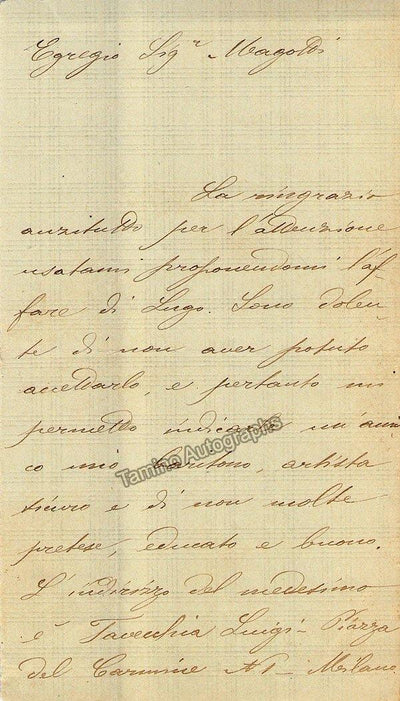 Egregio Sigʳ Magotti
La ringrazio
anzitutto per l'attenzione
usatami proponendomi l'af-
fare di Lugo. Sono dolen-
te di non aver potuto
accettarlo, e pertanto mi
permetto indicarle un'ami-
co mio baritono, artista
sicuro e di non molte
pretese, educato e buono.
L'indirizzo del medesimo
è Tavecchia Luigi - Piazza
del Carmine N 1 - Milano
Tamino Autographs